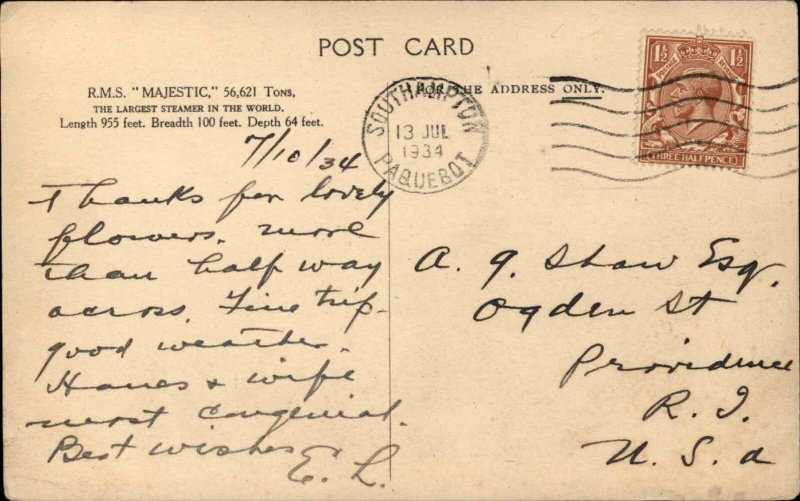 POST CARD
R.M.S. "MAJESTIC," 56,621 Tons,
THE LARGEST STEAMER IN THE WORLD.
Length 955 feet. Breadth 100 feet. Depth 64 feet.
FOR THE ADDRESS ONLY.
SOUTHAMPTON
13 JUL
1934
PAQUEBOT
1½ 1½
THREE HALFPENCE
7/10/34
Thanks for lovely
flowers. more
than half way
across. Fine trip-
good weather.
Hanes & wife
most congenial.
Best wishes
E. L.
A. G. Shaw Esq.
Ogden St
Providence
R. I.
U. S. a